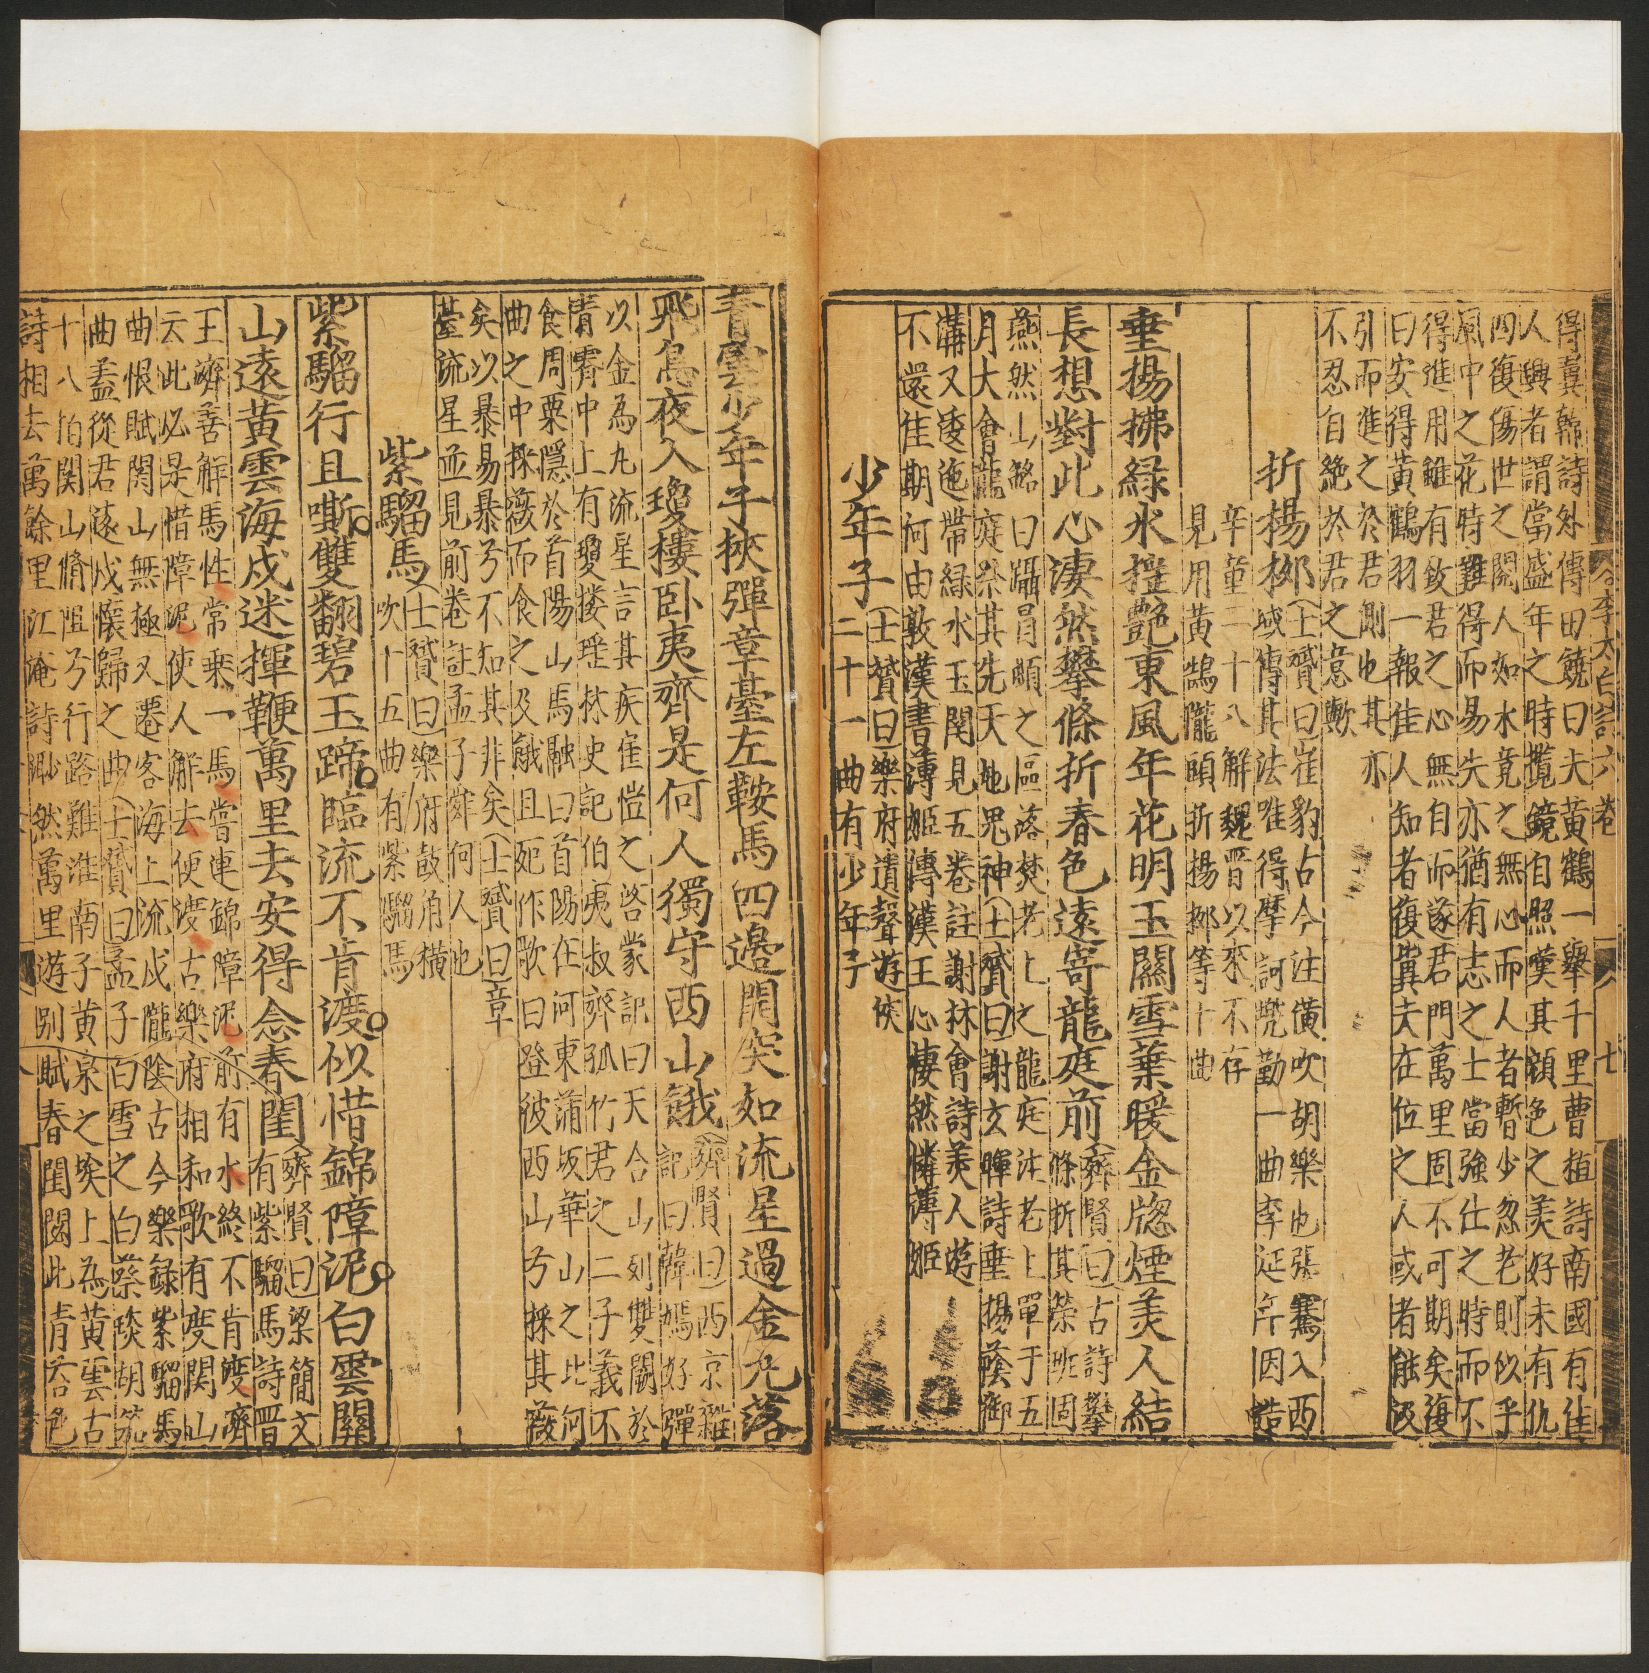 得冀歸詩外傳田饒曰夫黃鶴一舉千里曹植詩南國有佳
人興者謂當盛年之時攬鏡自照嘆其顔色之美好未有仇
四復傷世之閱人如水竟之無心而人者暫少忽老則似乎
風中之花時難得而易失亦猶有志之士當強仕之時而不
得進用雖有致君之心無自而遂君門萬里固不可期矣復
曰安得黃鶴羽一報佳人知者復冀夫在位之人或者能汲
引而進之於君側也其亦
不忍自絶於君之意歟
折楊栁(士贇曰崔豹古今注橫吹胡樂也張騫入西
域傳其法唯得摩訶兜勒一曲李延年因造
辛童二十八解魏晋以來不存
見用黃鵠隴頭折揚栁等十曲
垂揚拂綠水揺艶東風年花明玉關雪葉暖金牕煙美人結
長想對此心淒然攀條折春色遠寄龍庭前(齊賢曰古詩攀
條折其榮班固
燕然山銘曰躡冒頓之區落焚老上之龍庭注老上單于五
月大會龍庭祭其先天地鬼神(士贇曰謝玄暉詩垂楊蔭御
溝又逶迤帶綠水玉関見五卷註謝秣會詩美人遊
不還佳期何由敦漢書溥姬傳漢王心悽然憐薄姬
少年子(士贇曰樂府遺聲遊俠
二十一曲有少年子
青雲少年子挾彈章臺左鞍馬四邊開突如流星過金丸落
飛鳥夜入瓊樓卧夷齊是何人獨守西山餓(齊賢曰西京雜
記曰韓嫣好彈
以金為丸流星言其疾崔愷之啓蒙記曰天台山列雙闕於
青霄中上有瓊樓瑶林史記伯夷叔齊孤竹君之二子義不
食周粟隱於首陽山馬融曰首陽在河東蒲坂華山之北河
曲之中採薇而食之及餓且死作歌曰登彼西山兮採其薇
矣以暴易暴兮不知其非矣(士贇曰章
臺流星並見前卷註孟子雖何人也
紫騮馬(士贇曰樂府鼓角橫
吹十五曲有紫騮馬
紫騮行且嘶雙翻碧玉蹄臨流不肯渡似惜錦障泥白雲關
山遠黃雲海戍迷揮鞭萬里去安得念春閨(齊賢曰梁簡文
有紫騮馬詩晋
王濟善解馬性常乗一馬嘗連錦障泥前有水終不肯渡濟
云此必是惜障泥使人解去便渡古樂府相和歌有度関山
曲恨賦関山無極又遷客海上流戍隴隂古今樂録紫騮馬
曲蓋從君遠戍懷歸之曲(士贇曰孟子白雪之白蔡琰胡笳
十八拍関山脩阻兮行路難淮南子黃泉之埃上為黃雲古
詩相去萬餘里江淹詩眇然萬里遊別賦春閨閟此青苔色